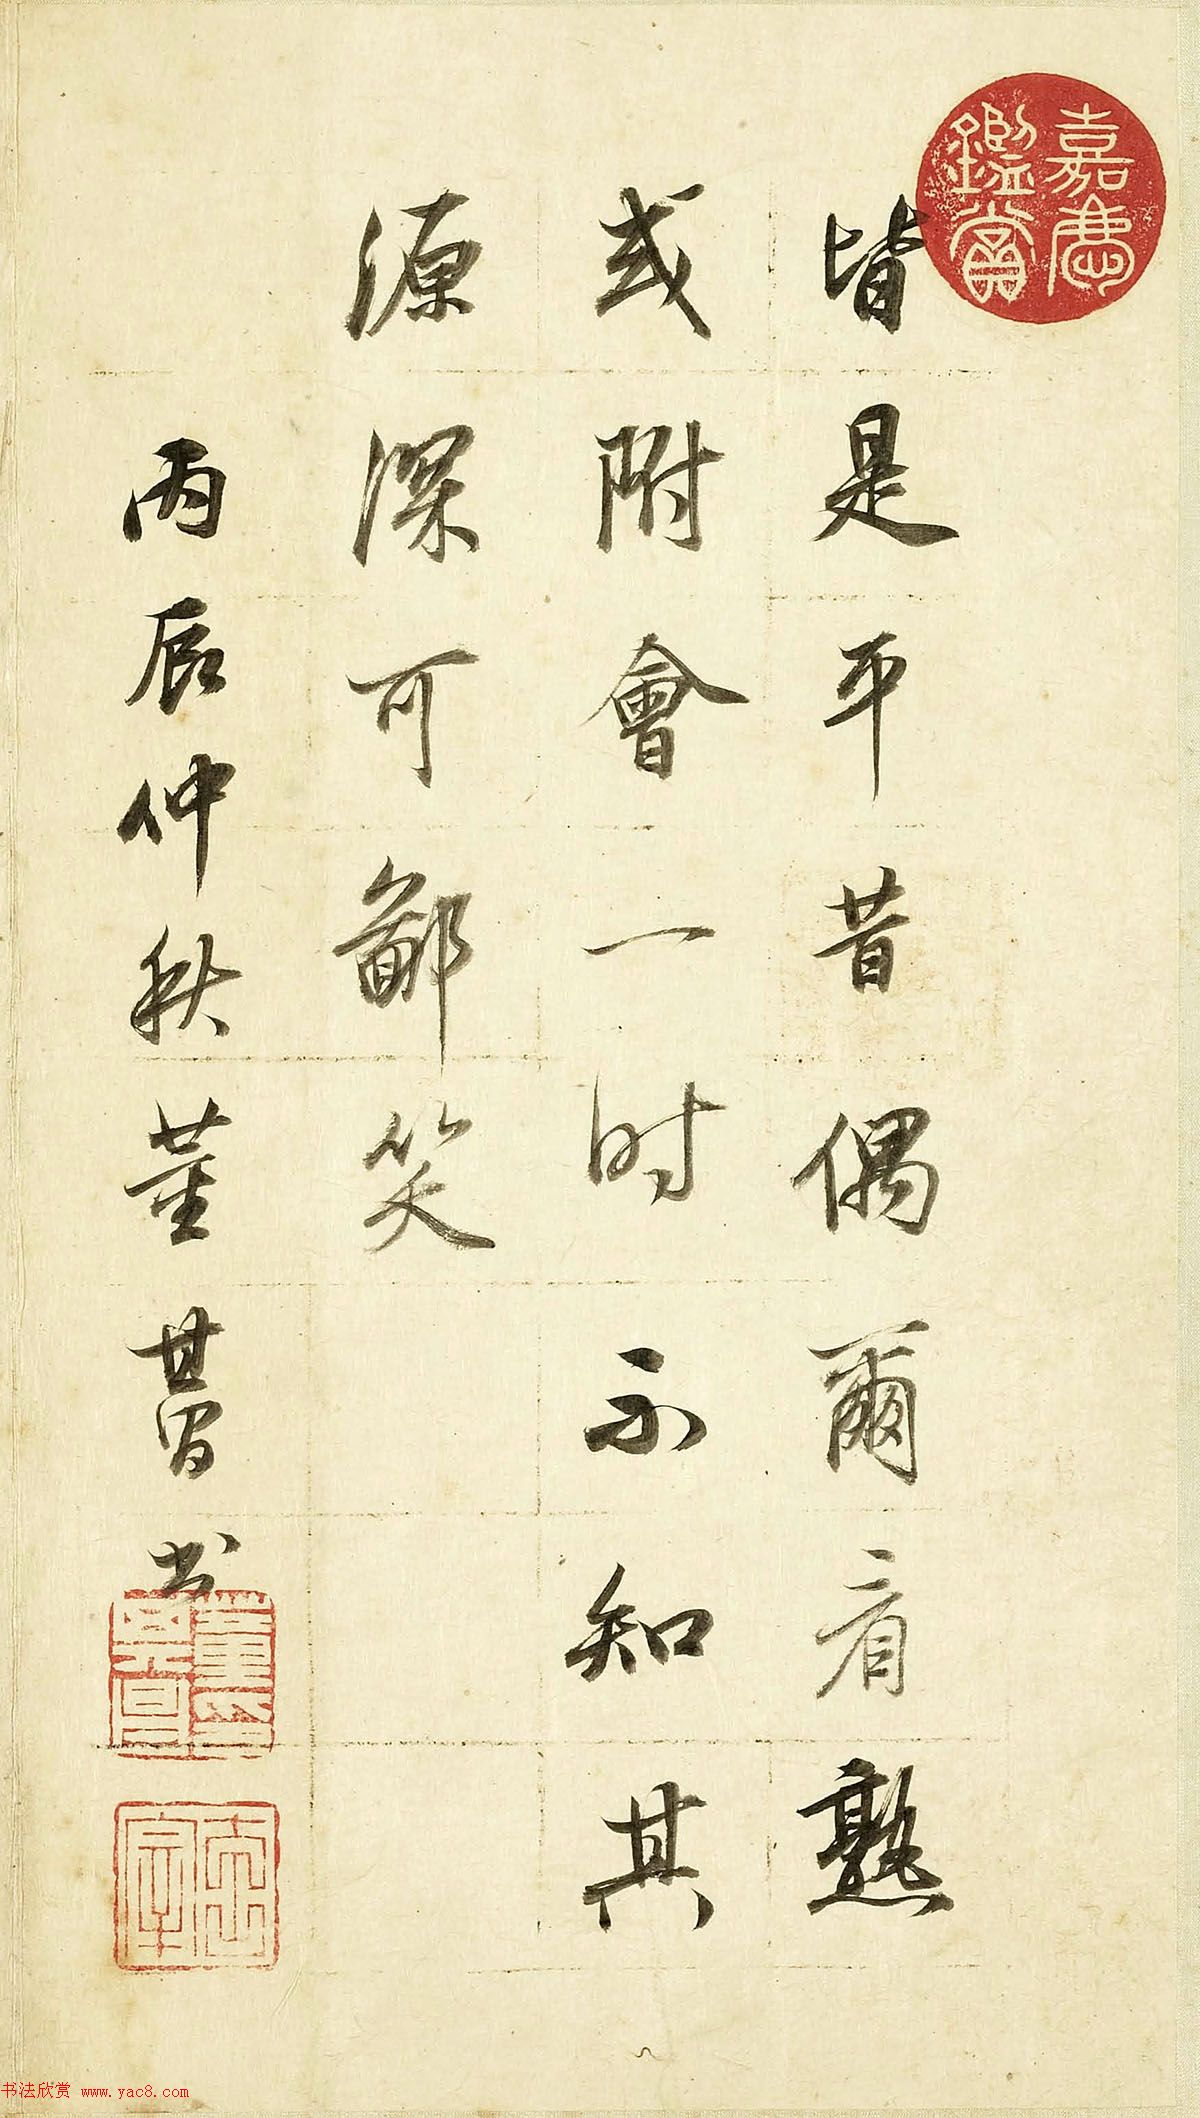 嘉慶
鑑賞
皆是平昔偶爾看熟
或附會一時不知其
源深可鄙笑
丙辰仲秋董其昌书
书法欣赏 www.yac8.com